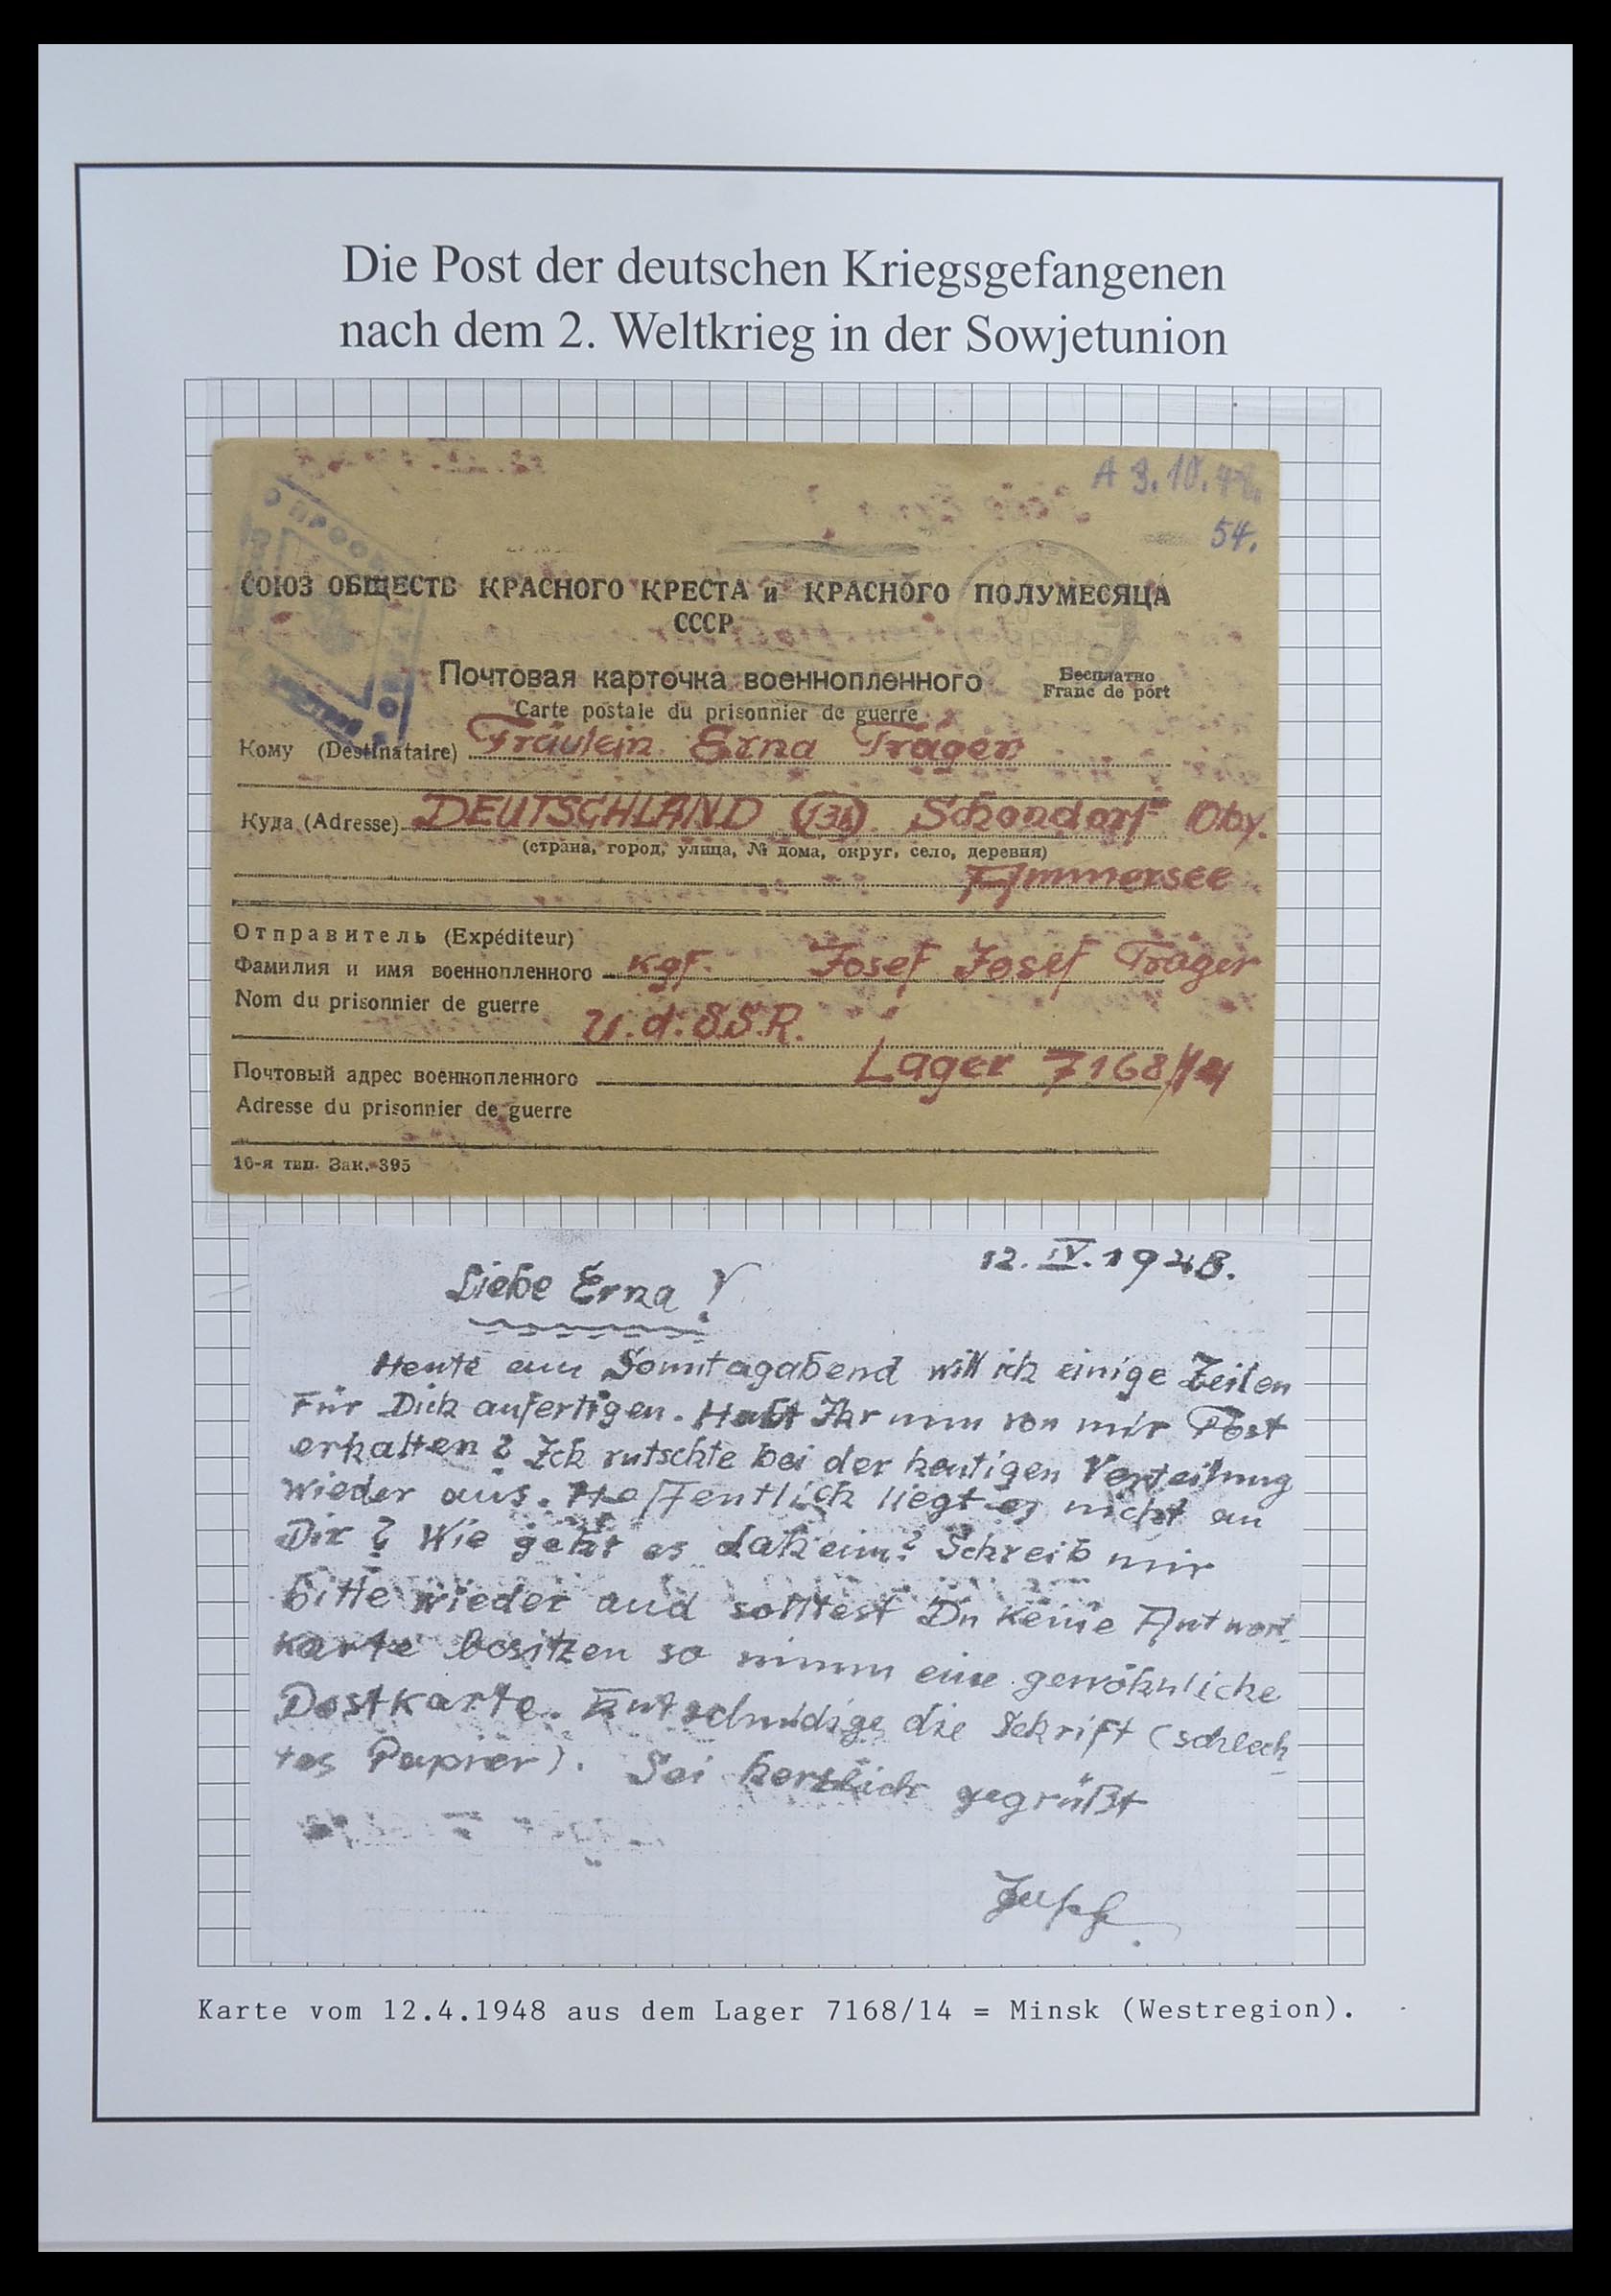 Die Post der deutschen Kriegsgefangenen
nach dem 2. Weltkrieg in der Sowjetunion
A 3.10.48.
54.
СОЮЗ ОБЩЕСТВ КРАСНОГО КРЕСТА и КРАСНОГО ПОЛУМЕСЯЦА
СССР
Почтовая карточка военнопленного
Бесплатно
Carte postale du prisonnier de guerre
Franc de port
Кому (Destinataire) Fräulein Erna Träger
Куда (Adresse) DEUTSCHLAND (13b) Schondorf Oby.
(страна, город, улица, № дома, округ, село, деревня)
Ammersee
Отправитель (Expéditeur)
Фамилия и имя военнопленного Kgf. Josef Josef Träger
Nom du prisonnier de guerre
U.d.S.S.R.
Почтовый адрес военнопленного Lager 7168/14
Adresse du prisonnier de guerre
16-я тип. Зак. 395
12. IV. 1948.
Liebe Erna!
Heute am Sonntagabend will ich einige Zeilen
für Dich anfertigen. Habt Ihr nun von mir Post
erhalten? Ich rutschte bei der heutigen Verteilung
wieder aus. Hoffentlich liegt es nicht an
Dir? Wie geht es daheim? Schreib mir
bitte wieder und solltest Du keine Antwort-
karte besitzen so nimm eine gewöhnliche
Postkarte. Entschuldige die Schrift (schlech-
tes Papier). Sei herzlich gegrüßt
Karte vom 12.4.1948 aus dem Lager 7168/14 = Minsk (Westregion).